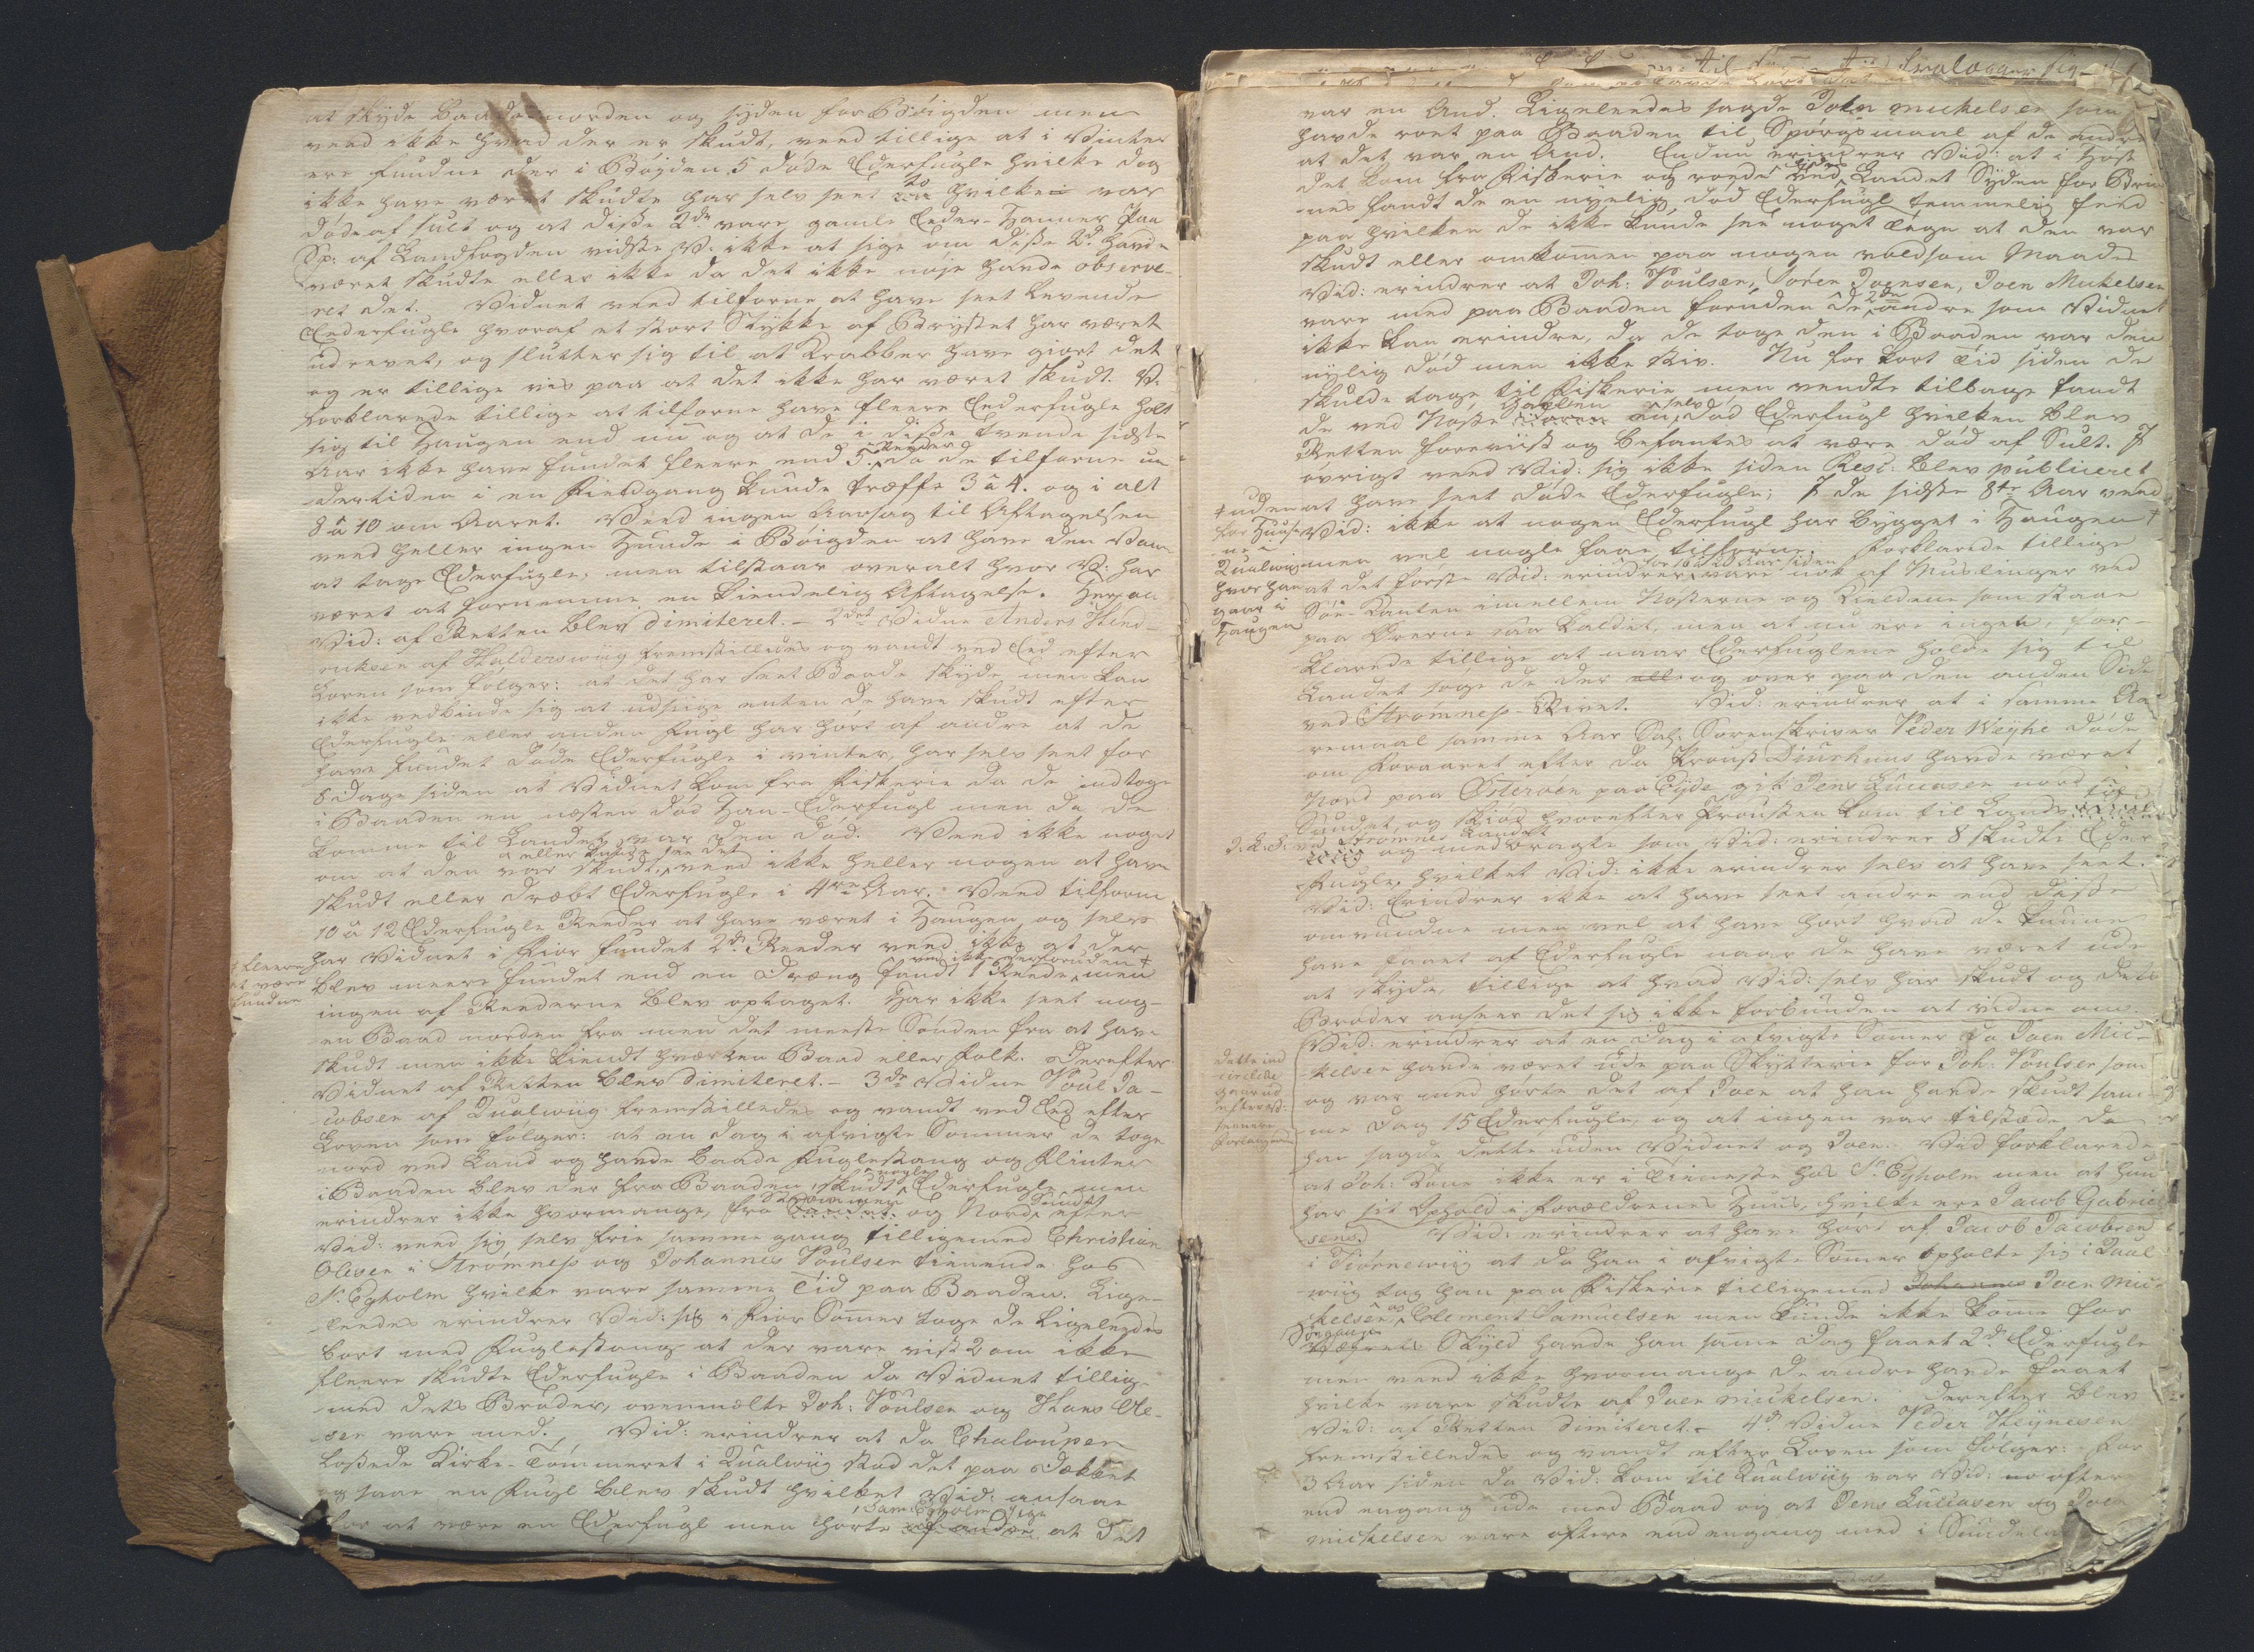 at skyde baade norden og syden for Bøigden men
veed ikke hvad der er skudt, veed tillige at i Vinter
ere fundne der i Bøjden 5 døde Ederfugle hvilke dog
ikke have været skudte har selv seet to hvilke var
døde af sult og at disse 2de vare gamle Eder-Hanner Paa
Sp: af Landfogden vidste V: ikke at sige om disse 2de havde
været skudte eller ikke da det ikke nøje havde observe-
ret det. Vidnet veed tilforne at have seet levende
Ederfugle hvoraf et stort Stykke af Brystet har været
udrevet, og slutter sig til at Krabber have giort det
og er tillige vis paa at det ikke har været skudt. V:
forklarede tillige at tilforne have fleere Ederfugle holt
sig til Haugen end nu og at de i disse tvende sidste
Aar ikke have fundet fleere end 5 Reeder da de tilforne un-
dertiden i en Fieldgang kunde træffe 3 à 4. og i alt
8 à 10 om Aaret. Veed ingen Aarsag til Aftagelsen
veed heller ingen Hunde i Bøigden at have den Vane
at tage Ederfugle, men tilstaar overalt hvor V: har
været at fornemme en kiendelig Aftagelse. Herpaa
Vid: af Retten blev dimiteret. – 2det Vidne Anders Hend-
ricksen af Halderswiig fremstilledes og vandt ved Eed efter
Loven som følger: at det har seet Baade skyde, men kan
ikke vedbinde sig at udsiige enten de have skudt efter
Ederfugle eller anden Fugl har hørt af andre at de
have fundet døde Ederfugle i vinter, har selv seet for
8 Dage siden at Vidnet kom fra Fiskerie da de indtoge
i Baaden en næsten død Han-Ederfugl men da de
komme til Landet var den død. Veed ikke noget
om at den var skudt eller kunde see det, veed ikke heller nogen at have
skudt eller dræbt Ederfugle i 4re Aar. Veed tilforn
10 à 12 Ederfugle Reeder at have været i Haugen og selv
har Vidnet i Fior fundet 2de Reeder veed ikke at der
† fleere at være fundne
blev meere fundet end en Dreng fandt 1 Reede veed ikke desforuden † men
ingen af Reederne blev optaget. Har ikke seet nog-
en Baad norden fra men det meeste Sønden fra at have
skudt men ikke kiendt hverken Baad eller Folk. Derefter
Vidnet af Retten blev dimiteret. – 3de Vidne Poul Ja-
cobsen af Qualwiig fremstilledes og vandt ved Eed efter
Loven som følger: at en Dag i afvigte Sommer de toge
nord ved Land og havde baade Fuglestang og Flinter
i Baaden blev der fra Baaden skudt nogle Ederfugle men
erindrer ikke hvormange, fra Strømmen og Nord efter
Vid: veed sig selv frie samme gang tilligemed Christian
Olesen i Strømness og Johannes Poulsen tienende hos
Sr. Egholm hvilke vare samme Tid paa Baaden. Lige-
leedes erindrer Vid: sig i Fior Somer toge de ligeleedes
bort med Fuglestang at der vare vist 2 om ikke
fleere skudte Ederfugle i Baaden da Vidnet tillige-
med dets Broder, ovenmelte Joh: Poulsen og Hans Ole-
sen vare med. Vid: erindrer at da Chaloupen
lossede Kirke-Tømmeret i Qualwiig stod det paa Dækket
og saae en Fugl blev skudt hvilket Vid: ansaae
for at være en Ederfugl men hørte Sam: Egholm sige af andre at det
var en And. Ligeleedes sagde Joen Mickelsen som
havde roet paa Baaden til Spørgsmaal af de andre
at det var en And. Endnu erindrer Vid: at i Høst
det kom fra Fiskerie og roede ved Landet Syden for Brim-
nes fandt de en nyelig død Ederfugl temmelig feed
paa hvilken de ikke kunde see noget Tegn at den var
skudt eller omkomen paa nogen voldsom Maade
Vid: erindrer at Joh: Poulsen, Søren Joensen, Joen Mickelsen
vare med paa Baaden foruden de 2de andre som Vidnet
ikke kan erindre, da de toge den i Baaden var den
nylig død men ikke stiv. Nu for kort Tid siden de
skulde tage til Fiskerie men vendte tilbage fandt
de ved Nøste Gavlen en selv død Ederfugl hvilken blev
Retten foreviist og befantes at være død af Sult. I
øvrigt veed Vid: sig ikke siden Resc: blev publiceret
at have seet døde Ederfugle; I de sidste 8te Aar veed
Vid: ikke at nogen Ederfugl har bygget i Haugen †
† uden for Huusene i Qualwiig hvor han gaar i Haugen
men vel nogle faae tilforne. Forklarede tillige
at det første Vid: erindrer for 16 à 20 Aar siden vare nok af Muslinger ved
Søe-Kanten imellem Nøsterne og Kieldene som staae
paa Ørerne saa kaldet, men at nu ere ingen, for-
klarede tillige at naar Ederfuglene holde sig til
Landet søge de der og over paa den anden Side
ved Strømness-Rivet. Vid: erindrer at i samme Aa-
remaal samme Aar Sal: Sorenskriver Peder Weyhe døde
om Foraaret efter da Proust Diurhuus havde været
Nord paa Østerøen paa Eyde gik Jens Lucasen nord
Sundet, og skiød hvorefter Prousten kom til Lands
ved Strømnes Landet og medbragte som Vid: erindrer 8 skudte Eder
Fugle, hvilket Vid: ikke erindrer selv at have seet.
Vid: Erindrer ikke at have seet andre end disse
omvundne men vel at have hørt hvad de kunne
have faaet af Ederfugle naar de have været ude
at skyde, tillige at hvad Vid: selv har skudt og dets
Broder anseer det sig ikke forbunden at vidne om.
Vid: erindrer at en Dag i afvigte Somer da Joen Mic-
kelsen havde været ude paa Skytterie for Joh: Poulsen som
og var med hørte det af Joen at han havde skudt sam-
me Dag 15 Ederfugle, og at ingen var tilstæde da
han sagde dette uden Vidnet og Joen. Vid forklarede
at Joh: Kone ikke er i Tieneste hos Sr. Egholm men at hun
har sit Ophold i Forældrenes Huus, hvilke ere Jacob Gabriel-
sens. Vid: erindrer at have hørt af Jacob Jacobsen
i Tiørnewiig at da han i afvigte Somer opholte sig i Qual-
wiig tog han paa Fiskerie tilligemed Johannes Joen Mic-
kelsen og Clement Samuelsen men kunde ikke kome for
Søegangs Skyld havde han same Dag faaet 2de Ederfugle
men veed ikke hvormange de andre havde faaet
hvilke vare skudte af Joen Mickelsen. Derefter blev
Vid: af Retten dimiteret. – 4de Vidne Peder Heynesen
fremstilledes og vandt efter Loven som følger: For
3 Aar siden da Vid: kom til Qualwiig var Vid: oftere
end engang ude med Baad og at Jens Lucasen og Joen
Mickelsen vare oftere end engang med i Sundela